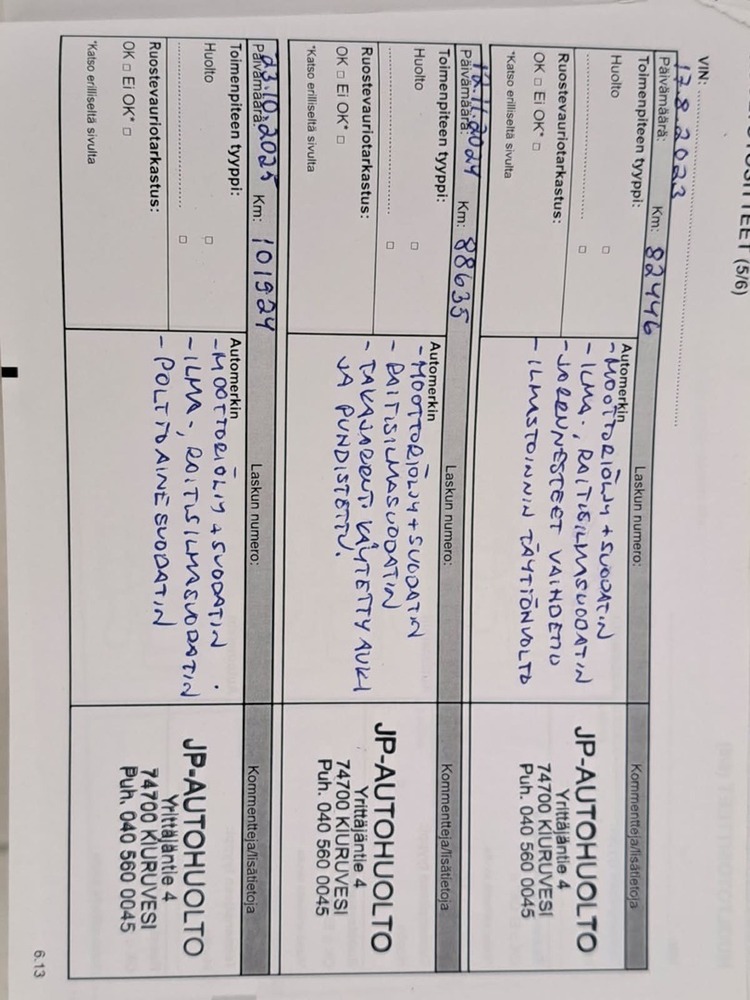 (5/6)
VIN:
Päivämäärä: 17.8.2023 Km: 82446 Laskun numero: Kommentteja/lisätietoja
Toimenpiteen tyyppi:
Huolto □
□
Ruostevauriotarkastus:
OK □ Ei OK* □
*Katso erilliseltä sivulta
Automerkin
- MOOTTORIÖLJY + SUODATIN
- ILMA-, RAITISILMASUODATIN
- JARRUNESTEET VAIHDETTU
- ILMASTOINNIN TÄYTTÖHUOLTO
JP-AUTOHUOLTO
Yrittäjäntie 4
74700 KIURUVESI
Puh. 040 560 0045
Päivämäärä: 12.11.2024 Km: 88635 Laskun numero: Kommentteja/lisätietoja
Toimenpiteen tyyppi:
Huolto □
□
Ruostevauriotarkastus:
OK □ Ei OK* □
*Katso erilliseltä sivulta
Automerkin
- MOOTTORIÖLJY + SUODATIN
- RAITISILMASUODATIN
- TAKAJARRUT KÄYTETTY AUKI
JA PUHDISTETTU.
JP-AUTOHUOLTO
Yrittäjäntie 4
74700 KIURUVESI
Puh. 040 560 0045
Päivämäärä: 23.10.2025 Km: 101924 Laskun numero: Kommentteja/lisätietoja
Toimenpiteen tyyppi:
Huolto □
□
Ruostevauriotarkastus:
OK □ Ei OK* □
*Katso erilliseltä sivulta
Automerkin
- MOOTTORIÖLJY + SUODATIN
- ILMA-, RAITISILMASUODATIN
- POLTTOAINESUODATIN
JP-AUTOHUOLTO
Yrittäjäntie 4
74700 KIURUVESI
Puh. 040 560 0045
6.13